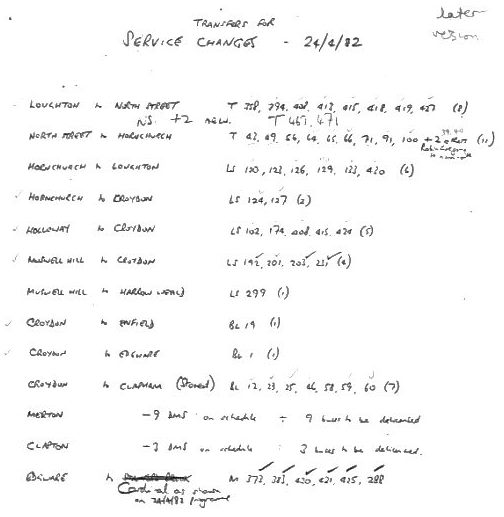 later
version
TRANSFERS FOR
SERVICE CHANGES - 24/4/82
LOUGHTON to NORTH STREET T 358, 394, 408, 413, 415, 418, 419, 457 (8)
NS. +2 new. T 467, 471
NORTH STREET to HORNCHURCH T 43, 49, 56, 64, 65, 66, 71, 91, 100 + 2 (11)
HORNCHURCH to LOUGHTON LS 120, 123, 126, 129, 133, 430 (6)
HORNCHURCH to CROYDON LS 124, 127 (2)
HOLLOWAY to CROYDON LS 102, 174, 408, 415, 424 (5)
MUSWELL HILL to CROYDON LS 192, 201, 203, 231 (4)
MUSWELL HILL to HARROW WEALD LS 299 (1)
CROYDON to ENFIELD BL 19 (1)
CROYDON to EDGWARE BL 1 (1)
CROYDON to CLAPHAM (Stored) BL 12, 23, 25, 46, 58, 59, 60 (7)
MERTON -9 DMS on schedule ÷ 9 buses to be delicensed
CLAPTON -3 DMS on schedule : 3 buses to be delicensed.
EDGWARE to M 373, 383, 420, 421, 425, 288
Cardinal as shown
on 24/4/82 programme